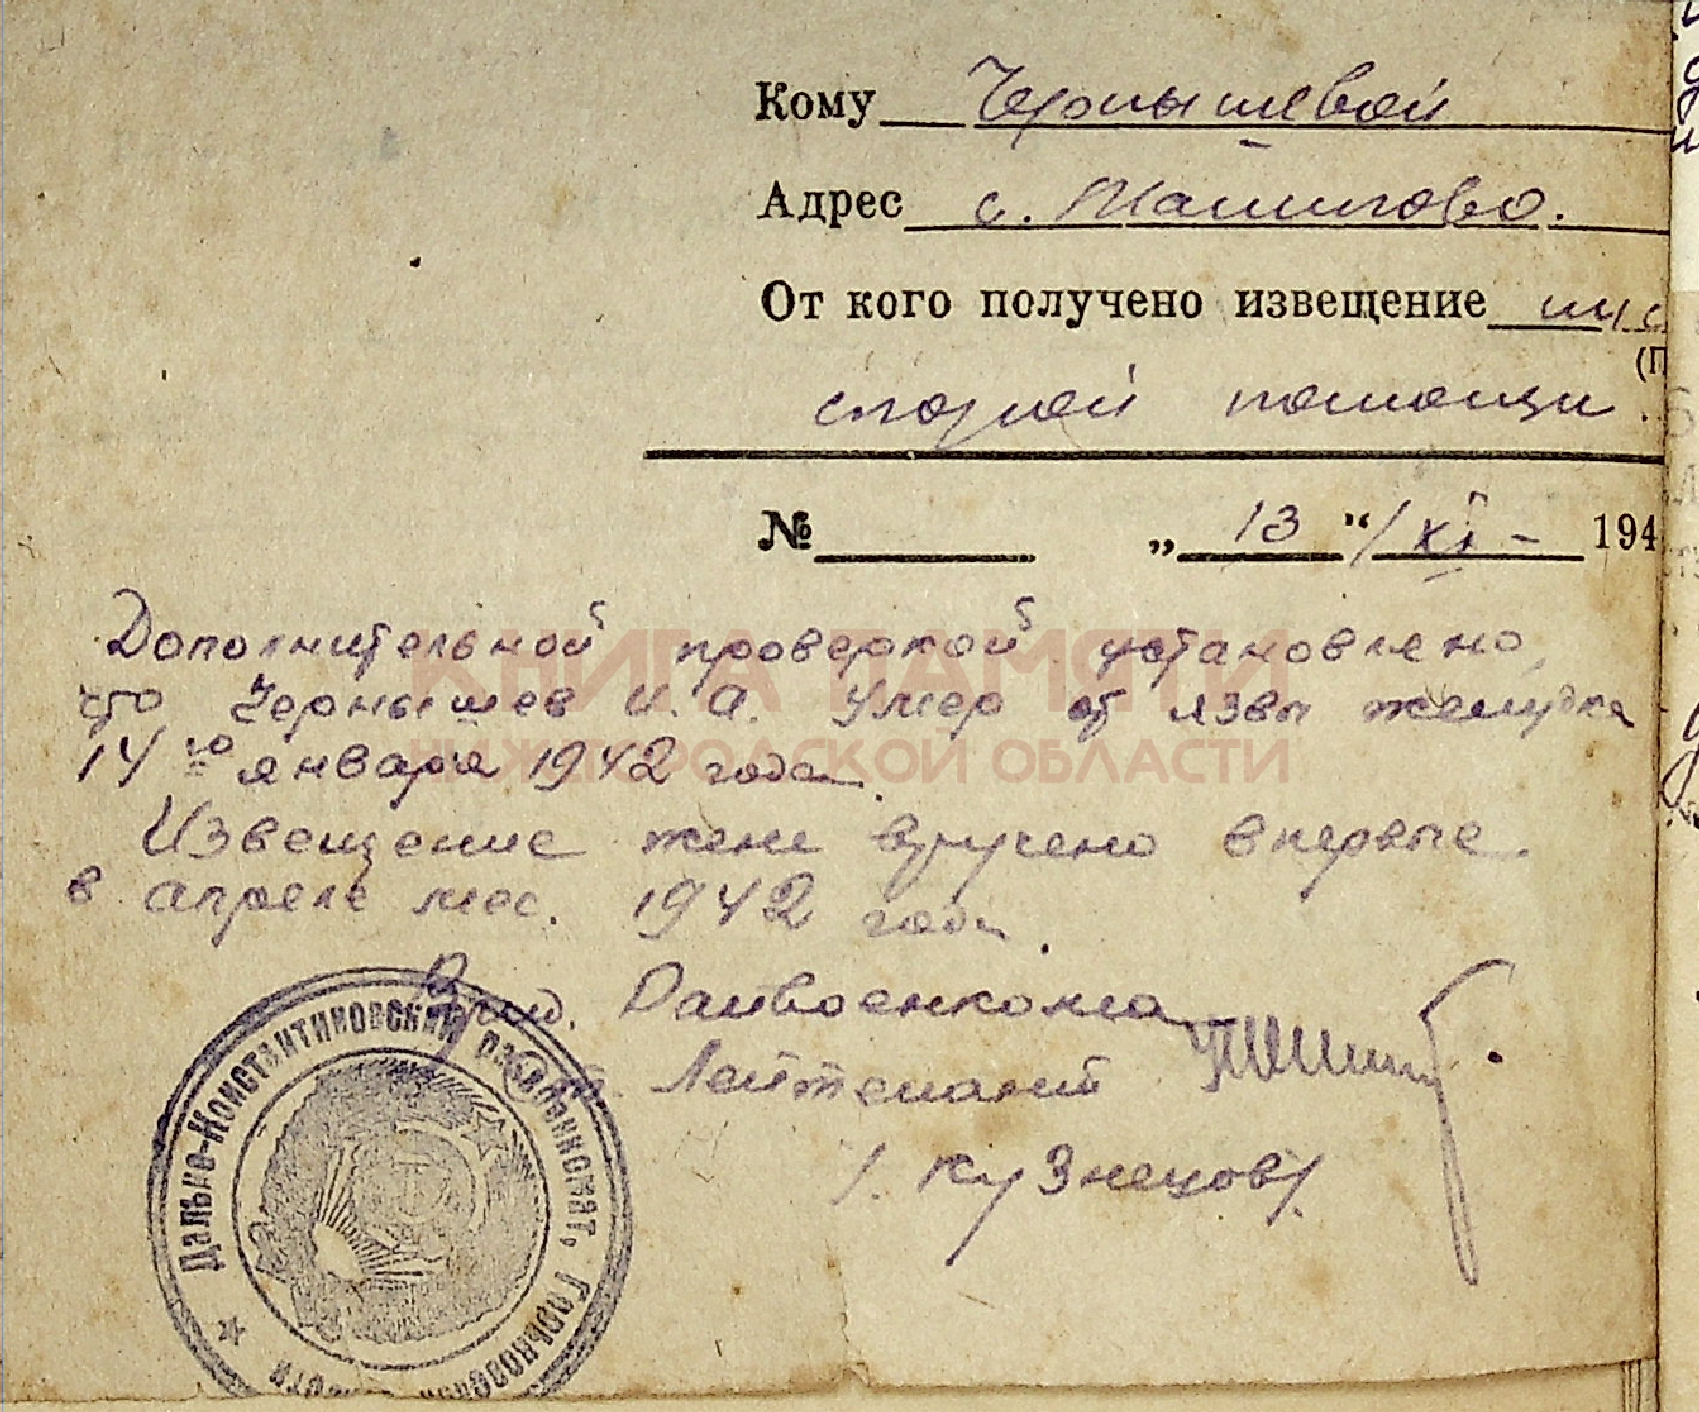 Кому Чернышевой
Адрес с. Ташипово.
От кого получено извещение
(П
помощи.
№ „ 13 “ / XI - 194
Дополнительной проверкой установлено,
что Чернышев И. А. умер от язвы желудка
14го января 1942 года.
Извещение жене вручено впервые
в апреле мес. 1942 года.
Врид. Райвоенкома
Ст. Лейтенант
/. Кузнецов/.
Дально-Константиновский райвоенкомат, Горьковской области
КНИГА ПАМЯТИ
НИЖЕГОРОДСКОЙ ОБЛАСТИ